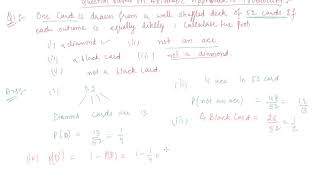 Question based on Axiomatic Approach to Probability
Q1:- One Card is drawn from a well shuffled deck of 52 cards. If
each outcome is equally likely, calculate the prob.
(i) a diamond (ii) not an ace
(iii) a black card (iv) not a diamond.
(v) not a black card
Ans:- (i) 52
Diamond cards are 13
P(D) = 13/52 = 1/4
(ii) 4 ace in 52 card
P(not an ace) = 48/52 = 12/13
(iii) A Black Card = 26/52 = 1/2
(iv) P(D') = 1 - P(D) = 1 - 1/4 =